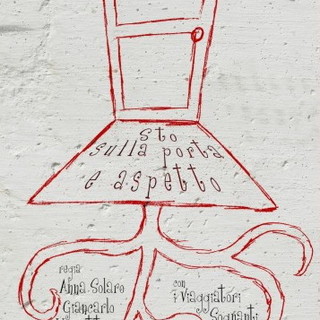 sto
sulla porta
e aspetto
regia
Anna Solaro
Giancarlo
con
i Viaggiatori
Sognanti